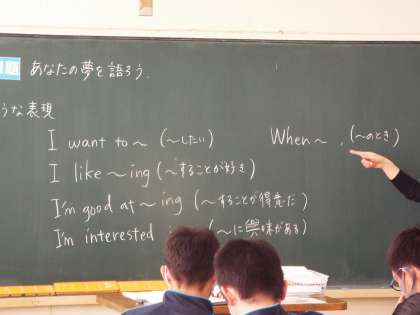 題 あなたの夢を語ろう.
うな表現
I want to ～ (～したい) When～ , (～のとき)
I like ～ing (～することが好き)
I'm good at ～ing (～することが得意だ)
I'm interested (～に興味がある)